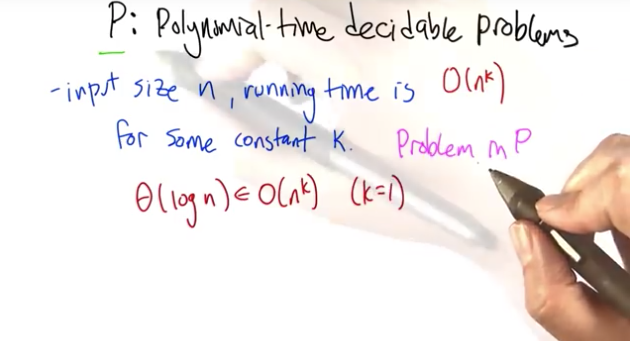 P: Polynomial-time decidable problems
-input size n, running time is O(n^k)
for some constant K. Problem in P
Θ(log n) ∈ O(n^k) (k=1)